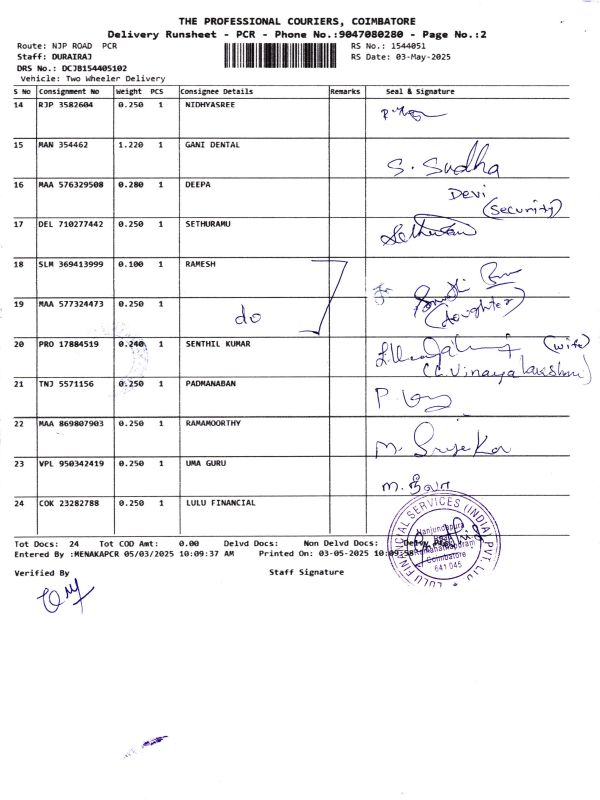 THE PROFESSIONAL COURIERS, COIMBATORE
Delivery Runsheet - PCR - Phone No.:9047080280 - Page No.:2
Route: NJP ROAD PCR RS No.: 1544051
Staff: DURAIRAJ RS Date: 03-May-2025
DRS No.: DCJB154405102
Vehicle: Two Wheeler Delivery
S No Consignment No Weight PCS Consignee Details Remarks Seal & Signature
14 RJP 3582604 0.250 1 NIDHYASREE
15 MAN 354462 1.220 1 GANI DENTAL S. Sudha
16 MAA 576329508 0.280 1 DEEPA Devi (Security)
17 DEL 710277442 0.250 1 SETHURAMU
18 SLM 369413999 0.100 1 RAMESH
19 MAA 577324473 0.250 1 do (daughter)
20 PRO 17884519 0.240 1 SENTHIL KUMAR (wife)
(L. Vinayalakshmi)
21 TNJ 5571156 0.250 1 PADMANABAN
22 MAA 869807903 0.250 1 RAMAMOORTHY
23 VPL 950342419 0.250 1 UMA GURU
24 COK 23282788 0.250 1 LULU FINANCIAL
LULU FINANCIAL SERVICES (INDIA) PVT. LTD.
Nanjundapuram
Road
Ramanathapuram
Coimbatore
641 045
Tot Docs: 24 Tot COD Amt: 0.00 Delvd Docs: Non Delvd Docs:
Entered By :MENAKAPCR 05/03/2025 10:09:37 AM Printed On: 03-05-2025 10:09:58
Verified By Staff Signature